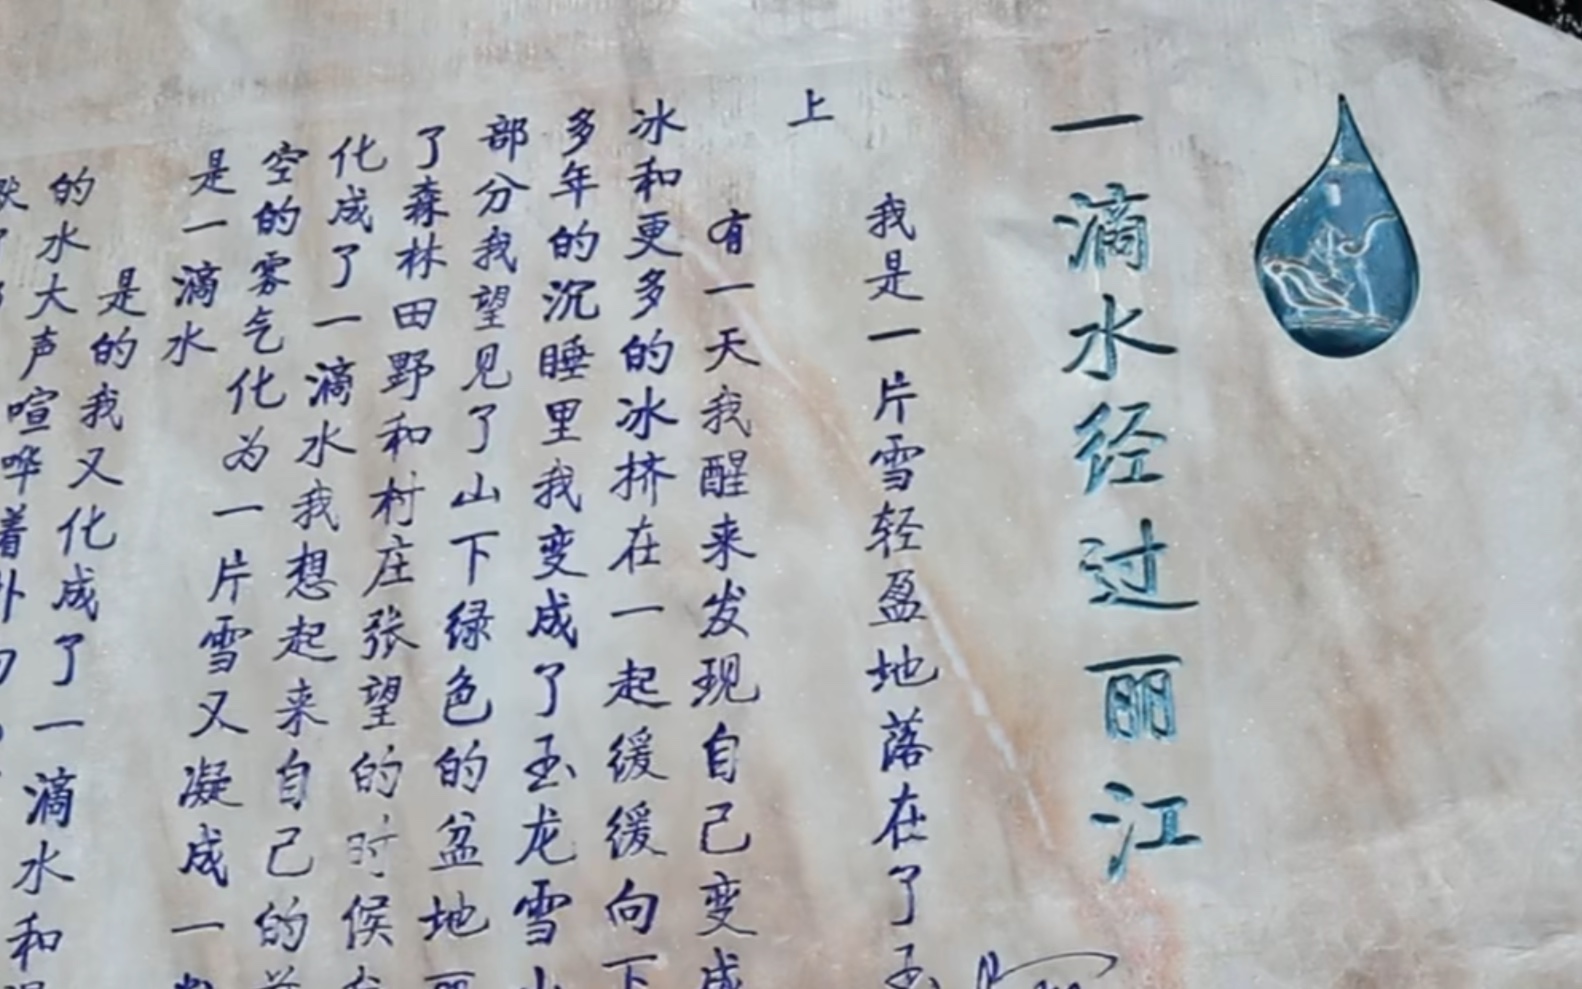 一滴水经过丽江
我是一片雪轻盈地落在了玉
上
有一天我醒来发现自己变成
冰和更多的冰挤在一起缓缓向下
多年的沉睡里我变成了玉龙雪山
部分我望见了山下绿色的盆地丽
了森林田野和村庄张望的时候
化成了一滴水我想起来自己的前
空的雾气化为一片雪又凝成一
是一滴水
是的我又化成了一滴水和
的水大声喧哗着扑向